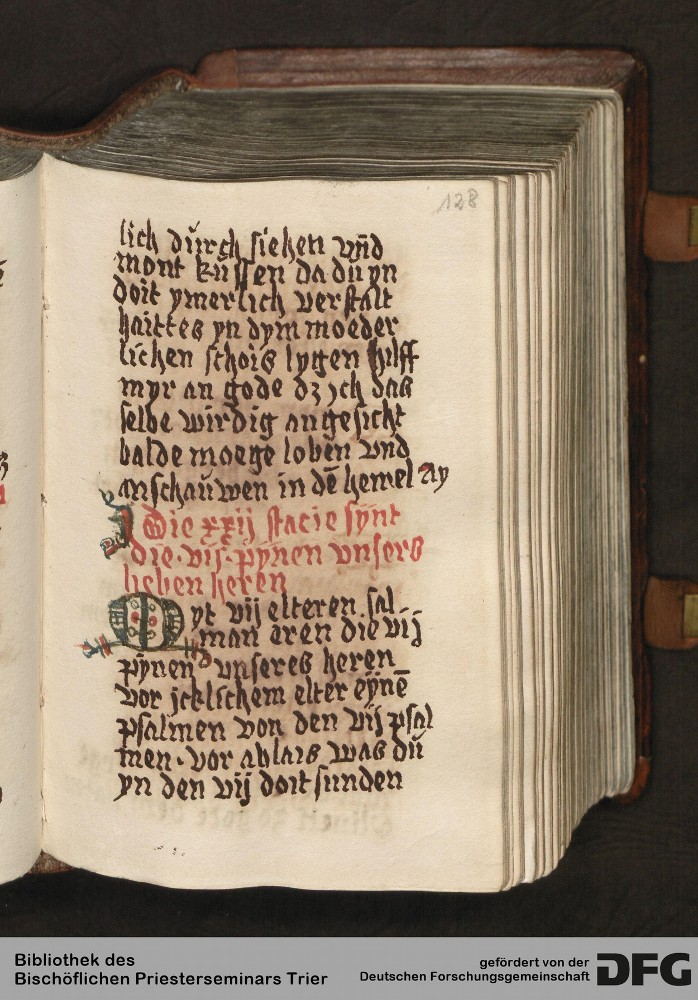 128
lich durch siehen vnd
mont kussen da du yn
doit ymerlich verstalt
haittes yn dym moeder
lichen schois lygen hilff
myr an gode dz ych das
selbe wirdig angesicht
balde moege loben vnd
anschauwen in dē hemel
Die xxij stacie synt
die · vij · pynen vnsers
lieben heren
yt vij elteren sal
man eren die vij
pynen vnseres heren
vor jcklichem elter eynē
psalmen von den vij psal
men · vor ablais was du
yn den vij doit sunden
Bibliothek des
Bischöflichen Priesterseminars Trier
gefördert von der
Deutschen Forschungsgemeinschaft DFG